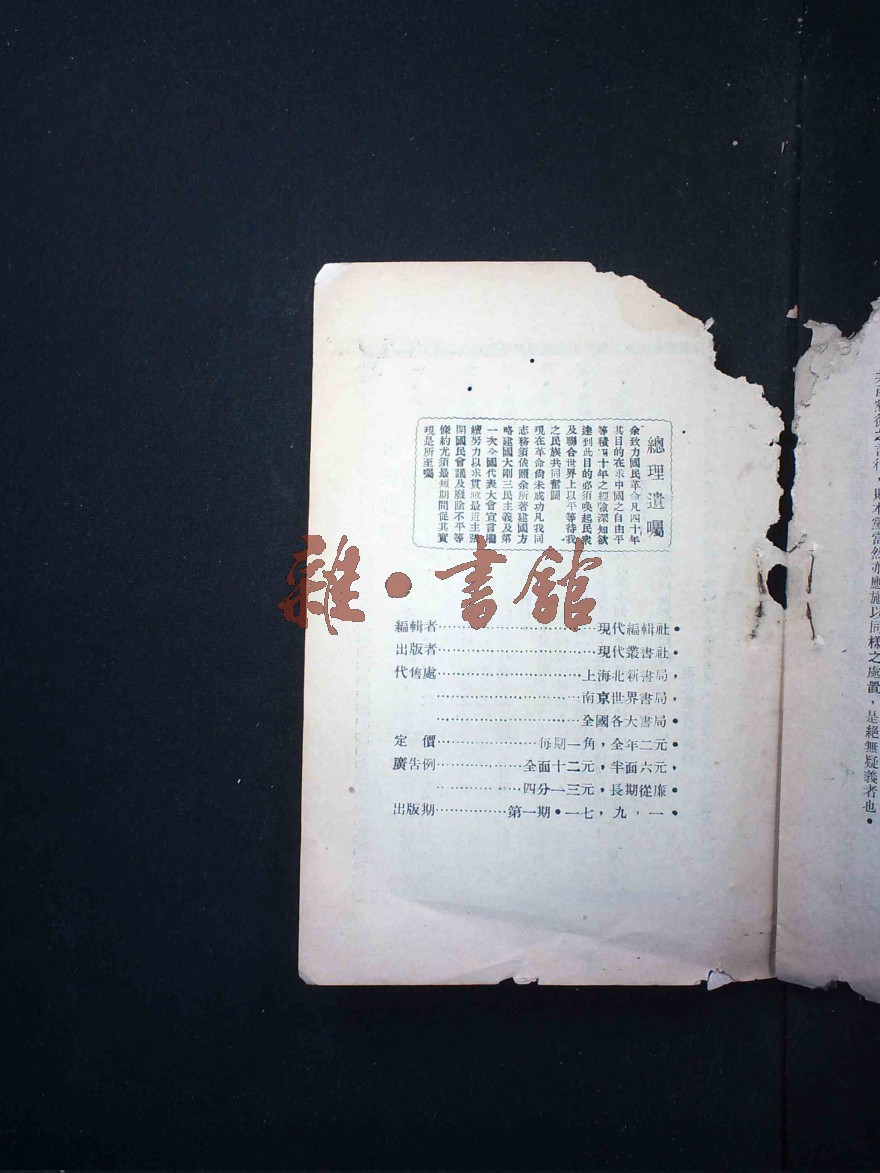 總理遺囑
余致力國民革命凡四十年
其目的在求中國之自由平
等積四十年之經驗深知欲
達到此目的必須喚起民衆
及聯合世界上以平等待我
之民族共同奮鬪
現在革命尙未成功凡我同
志務須依照余所著建國方
略建國大綱三民主義及第
一次全國代表大會宣言繼
續努力以求貫澈最近主張
開國民會議及廢除不平等
條約尤須最短期間促其實
現是所至囑
雜·書館
編輯者……………………現代編輯社。
出版者……………………現代叢書社。
代售處……………………上海北新書局，
……………………南京世界書局，
……………………全國各大書局。
定價……………每期一角，全年二元。
廣告例…………全面十二元，半面六元，
…………四分一三元，長期從廉。
出版期…………第一期。一七，九，一。
共產黨徒之言行，則本黨當然亦應施以同樣之處置，是絕無疑義者也。